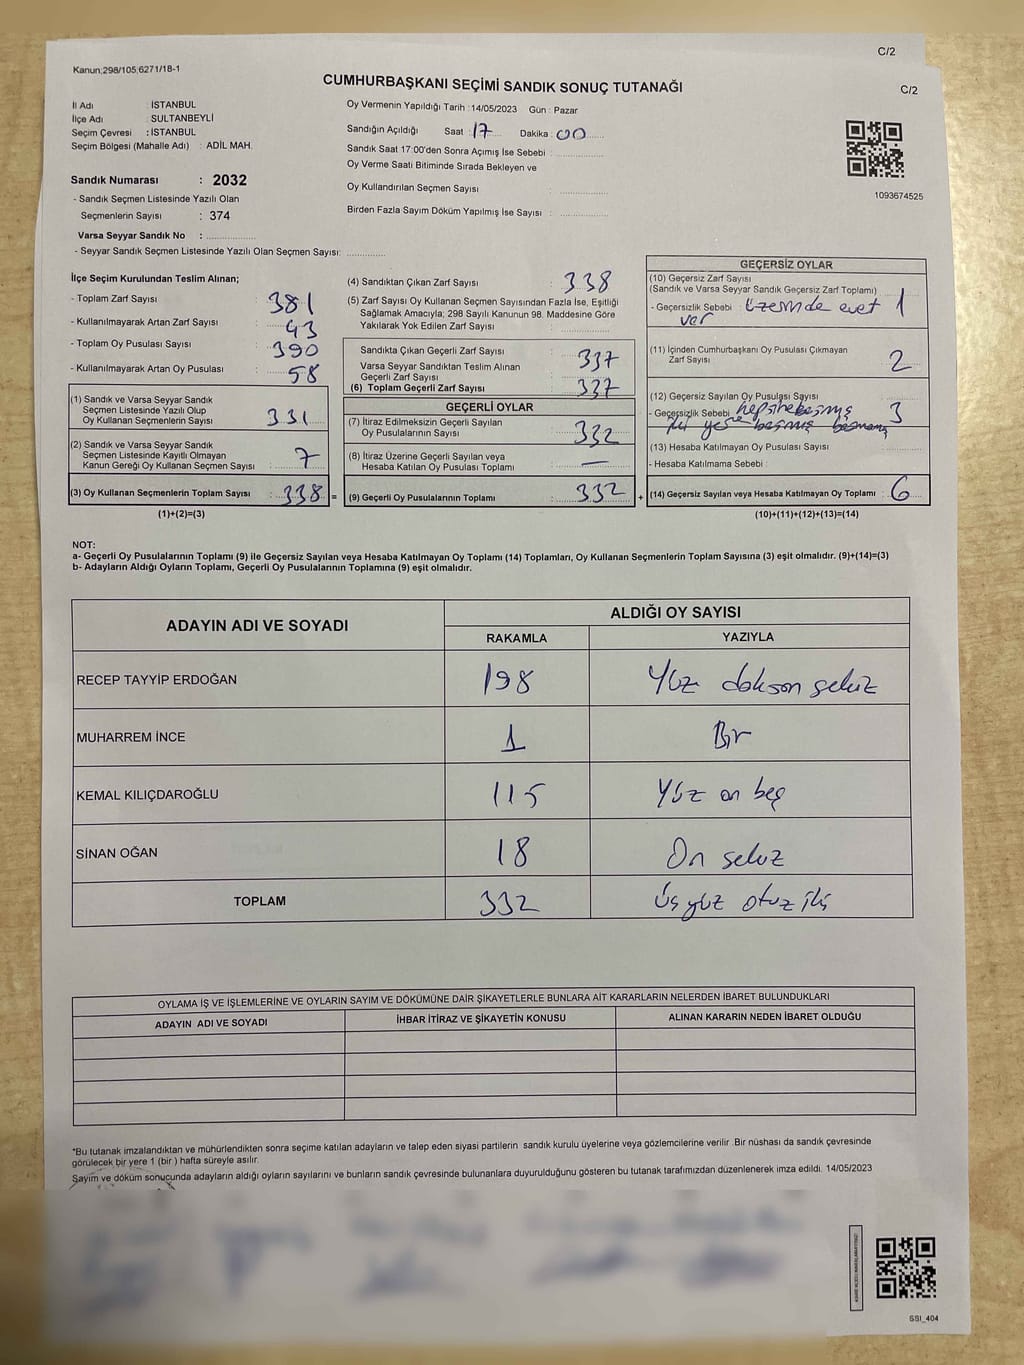 C/2
Kanun:298/105;6271/18-1
C/2
CUMHURBAŞKANI SEÇİMİ SANDIK SONUÇ TUTANAĞI
İl Adı : İSTANBUL
İlçe Adı : SULTANBEYLİ
Seçim Çevresi : İSTANBUL
Seçim Bölgesi (Mahalle Adı) : ADİL MAH.
Oy Vermenin Yapıldığı Tarih : 14/05/2023 Gün : Pazar
Sandığın Açıldığı Saat : 17 Dakika : 00
Sandık Saat 17:00'den Sonra Açımış İse Sebebi :
Oy Verme Saati Bitiminde Sırada Bekleyen ve
Oy Kullandırılan Seçmen Sayısı :
Birden Fazla Sayım Döküm Yapılmış İse Sayısı :
1093674525
Sandık Numarası : 2032
- Sandık Seçmen Listesinde Yazılı Olan
Seçmenlerin Sayısı : 374
Varsa Seyyar Sandık No :
- Seyyar Sandık Seçmen Listesinde Yazılı Olan Seçmen Sayısı:
İlçe Seçim Kurulundan Teslim Alınan;
- Toplam Zarf Sayısı : 381
- Kullanılmayarak Artan Zarf Sayısı : 43
- Toplam Oy Pusulası Sayısı : 390
- Kullanılmayarak Artan Oy Pusulası : 58
(1) Sandık ve Varsa Seyyar Sandık
Seçmen Listesinde Yazılı Olup
Oy Kullanan Seçmenlerin Sayısı : 331
(2) Sandık ve Varsa Seyyar Sandık
Seçmen Listesinde Kayıtlı Olmayan
Kanun Gereği Oy Kullanan Seçmen Sayısı : 7
(3) Oy Kullanan Seçmenlerin Toplam Sayısı : 338 =
(1)+(2)=(3)
(4) Sandıktan Çıkan Zarf Sayısı : 338
(5) Zarf Sayısı Oy Kullanan Seçmen Sayısından Fazla İse, Eşitliği
Sağlamak Amacıyla; 298 Sayılı Kanunun 98. Maddesine Göre
Yakılarak Yok Edilen Zarf Sayısı :
Sandıkta Çıkan Geçerli Zarf Sayısı : 337
Varsa Seyyar Sandıktan Teslim Alınan
Geçerli Zarf Sayısı :
(6) Toplam Geçerli Zarf Sayısı : 337
GEÇERLİ OYLAR
(7) İtiraz Edilmeksizin Geçerli Sayılan
Oy Pusulalarının Sayısı : 332
(8) İtiraz Üzerine Geçerli Sayılan veya
Hesaba Katılan Oy Pusulası Toplamı : —
(9) Geçerli Oy Pusulalarının Toplamı : 332 +
GEÇERSİZ OYLAR
(10) Geçersiz Zarf Sayısı
(Sandık ve Varsa Seyyar Sandık Geçersiz Zarf Toplamı)
- Geçersizlik Sebebi : üzerinde evet 1
var
(11) İçinden Cumhurbaşkanı Oy Pusulası Çıkmayan
Zarf Sayısı : 2
(12) Geçersiz Sayılan Oy Pusulası Sayısı : 3
- Geçersizlik Sebebi : hepsine basmış
iki yere basmış basmamış
(13) Hesaba Katılmayan Oy Pusulası Sayısı :
- Hesaba Katılmama Sebebi :
(14) Geçersiz Sayılan veya Hesaba Katılmayan Oy Toplamı : 6
(10)+(11)+(12)+(13)=(14)
NOT:
a- Geçerli Oy Pusulalarının Toplamı (9) ile Geçersiz Sayılan veya Hesaba Katılmayan Oy Toplamı (14) Toplamları, Oy Kullanan Seçmenlerin Toplam Sayısına (3) eşit olmalıdır. (9)+(14)=(3)
b- Adayların Aldığı Oyların Toplamı, Geçerli Oy Pusulalarının Toplamına (9) eşit olmalıdır.
ADAYIN ADI VE SOYADI ALDIĞI OY SAYISI
RAKAMLA YAZIYLA
RECEP TAYYİP ERDOĞAN 198 Yüz doksan sekiz
MUHARREM İNCE 1 Bir
KEMAL KILIÇDAROĞLU 115 Yüz on beş
SİNAN OĞAN 18 On sekiz
TOPLAM 332 Üç yüz otuz iki
OYLAMA İŞ VE İŞLEMLERİNE VE OYLARIN SAYIM VE DÖKÜMÜNE DAİR ŞİKAYETLERLE BUNLARA AİT KARARLARIN NELERDEN İBARET BULUNDUKLARI
ADAYIN ADI VE SOYADI İHBAR İTİRAZ VE ŞİKAYETİN KONUSU ALINAN KARARIN NEDEN İBARET OLDUĞU
*Bu tutanak imzalandıktan ve mühürlendikten sonra seçime katılan adayların ve talep eden siyasi partilerin sandık kurulu üyelerine veya gözlemcilerine verilir .Bir nüshası da sandık çevresinde
görülecek bir yere 1 (bir ) hafta süreyle asılır.
Sayım ve döküm sonucunda adayların aldığı oyların sayılarını ve bunların sandık çevresinde bulunanlara duyurulduğunu gösteren bu tutanak tarafımızdan düzenlenerek imza edildi. 14/05/2023
SSI_404